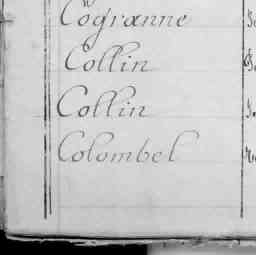 Cogranne
Collin
Collin
Colombel